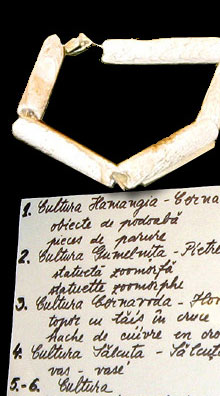 1. Cultura Hamangia - Cerna
obiecte de podoabă
pièces de parure
2. Cultura Gumelnița - Pietre
statuetă zoomorfă
statuette zoomorphe
3. Cultura Cernavoda -
topor cu tăiș în cruce
hache de cuivre en cro
4. Cultura Sălcuța - Sălcuța
vas - vase
5.-6. Cultura